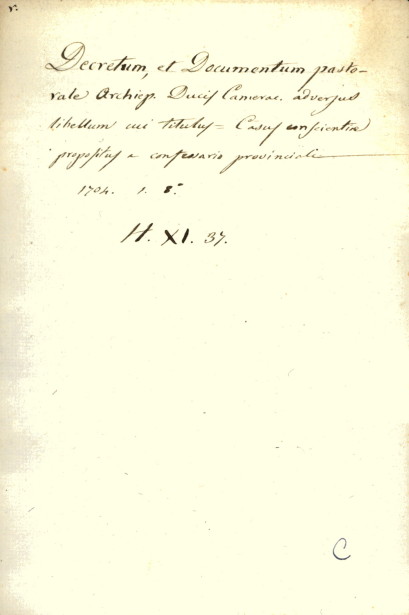 r.
Decretum, et Documentum pasto-
rale Archiep. Ducis Camerac. adversus
libellum cui titulus = Casus conscientiæ
propositus a confessario provinciali
1704. 1. 8°.
H. XI. 37.
C